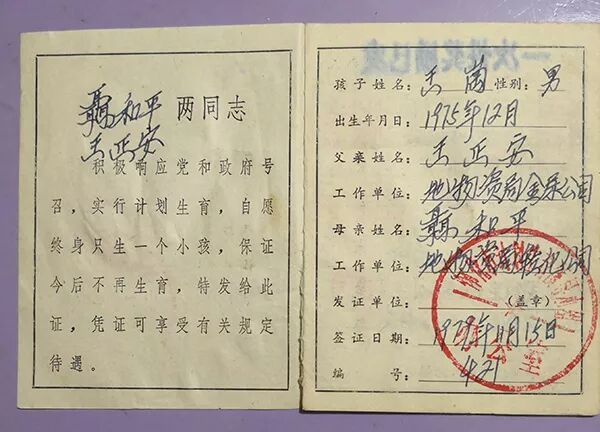 聂和平 两同志
王正安
积极响应党和政府号
召，实行计划生育，自愿
终身只生一个小孩，保证
今后不再生育，特发给此
证，凭证可享受有关规定
待遇。
孩子姓名：王茵 性别：男
出生年月日：1975年12月
父亲姓名：王正安
工作单位：地物资局金属公司
母亲姓名：聂和平
工作单位：地物资局轻化公司
发证单位：（盖章）
签证日期：1979年11月15日
编号：421